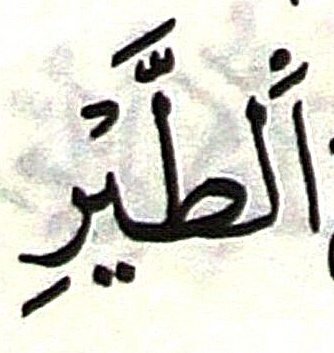 اَلطَّيْرِ